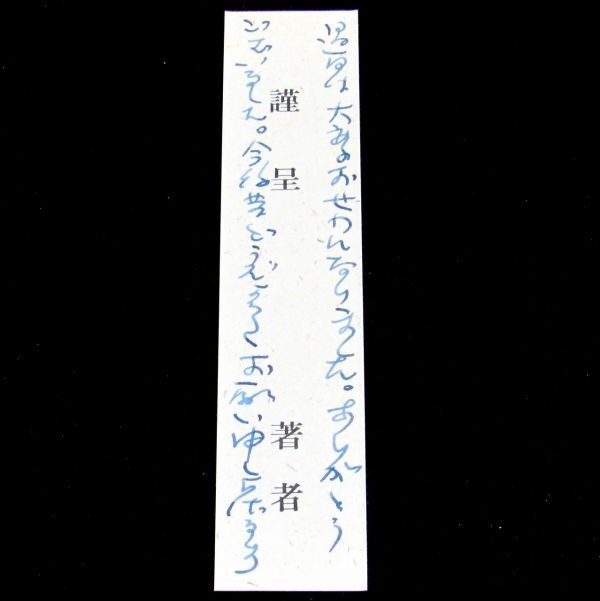 過日は大変おせわになりました。ありがとう
ございました。今後共どうぞよろしくお願い申し上げます
謹呈 著者